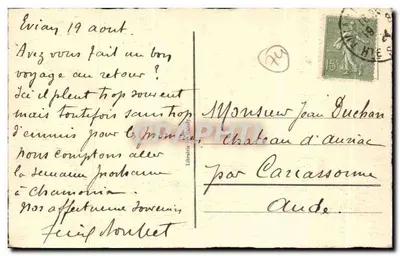 Evian 19 aout.
Avez vous fait un bon
voyage au retour ?
Ici il pleut trop souvent
mais toutefois sans trop
d'ennuis pour le moment
Nous comptons aller
la semaine prochaine
à Chamonix.
Nos affectueux souvenirs
74
15
Monsieur Jean Duchan
Chateau d'auriac
par Carcassonne
Aude.